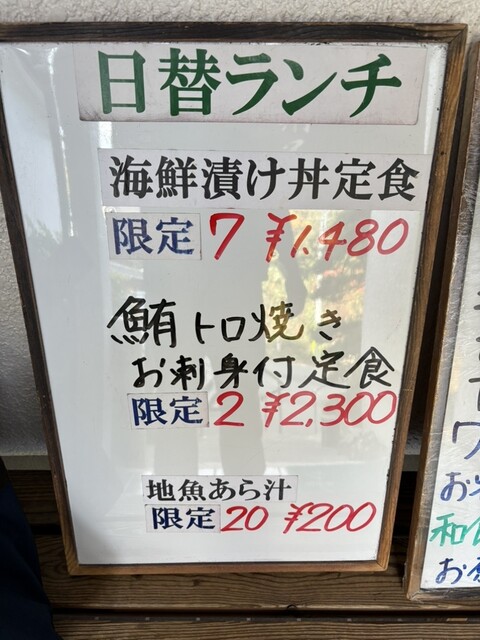 日替ランチ
海鮮漬け丼定食
限定 7 ¥1,480
鮪トロ焼き
お刺身付定食
限定 2 ¥2,300
地魚あら汁
限定 20 ¥200
ワ
お
和
お